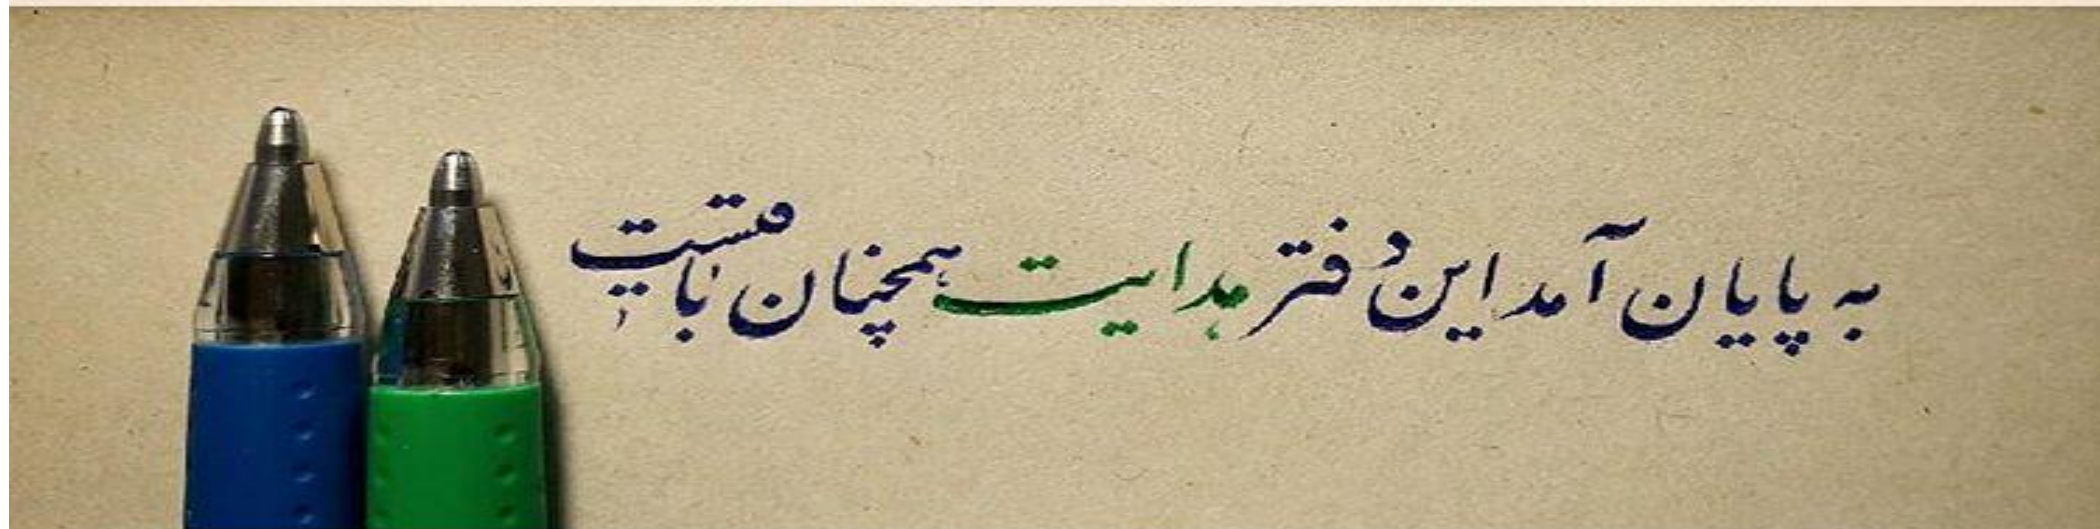 به پایان آمد این دفتر هدایت همچنان باقیست